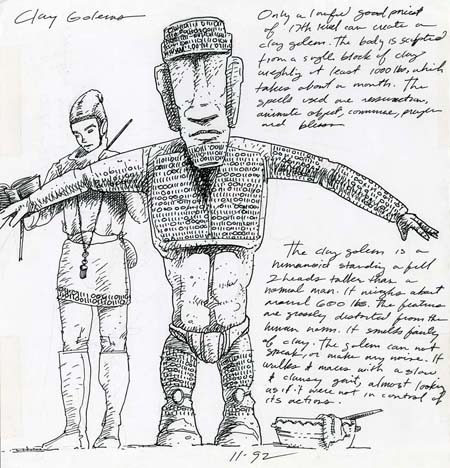 Clay Golems
Only a lawful good priest
of 17th level can create a
clay golem. The body is sculpted
from a single block of clay
weighing at least 1000 lbs, which
takes about a month. The
spells used are resurrection,
animate object, commune, prayer
and bless
The clay golem is a
humanoid standing a full
2 heads taller than a
normal man. It weighs about
around 600 lbs. The features
are grossly distorted from the
human norm. It smells faintly
of clay. The golem can not
speak, or make any noise. It
walks & moves with a slow
& clumsy gait, almost looks
as if it were not in control of
its actions.
11-92